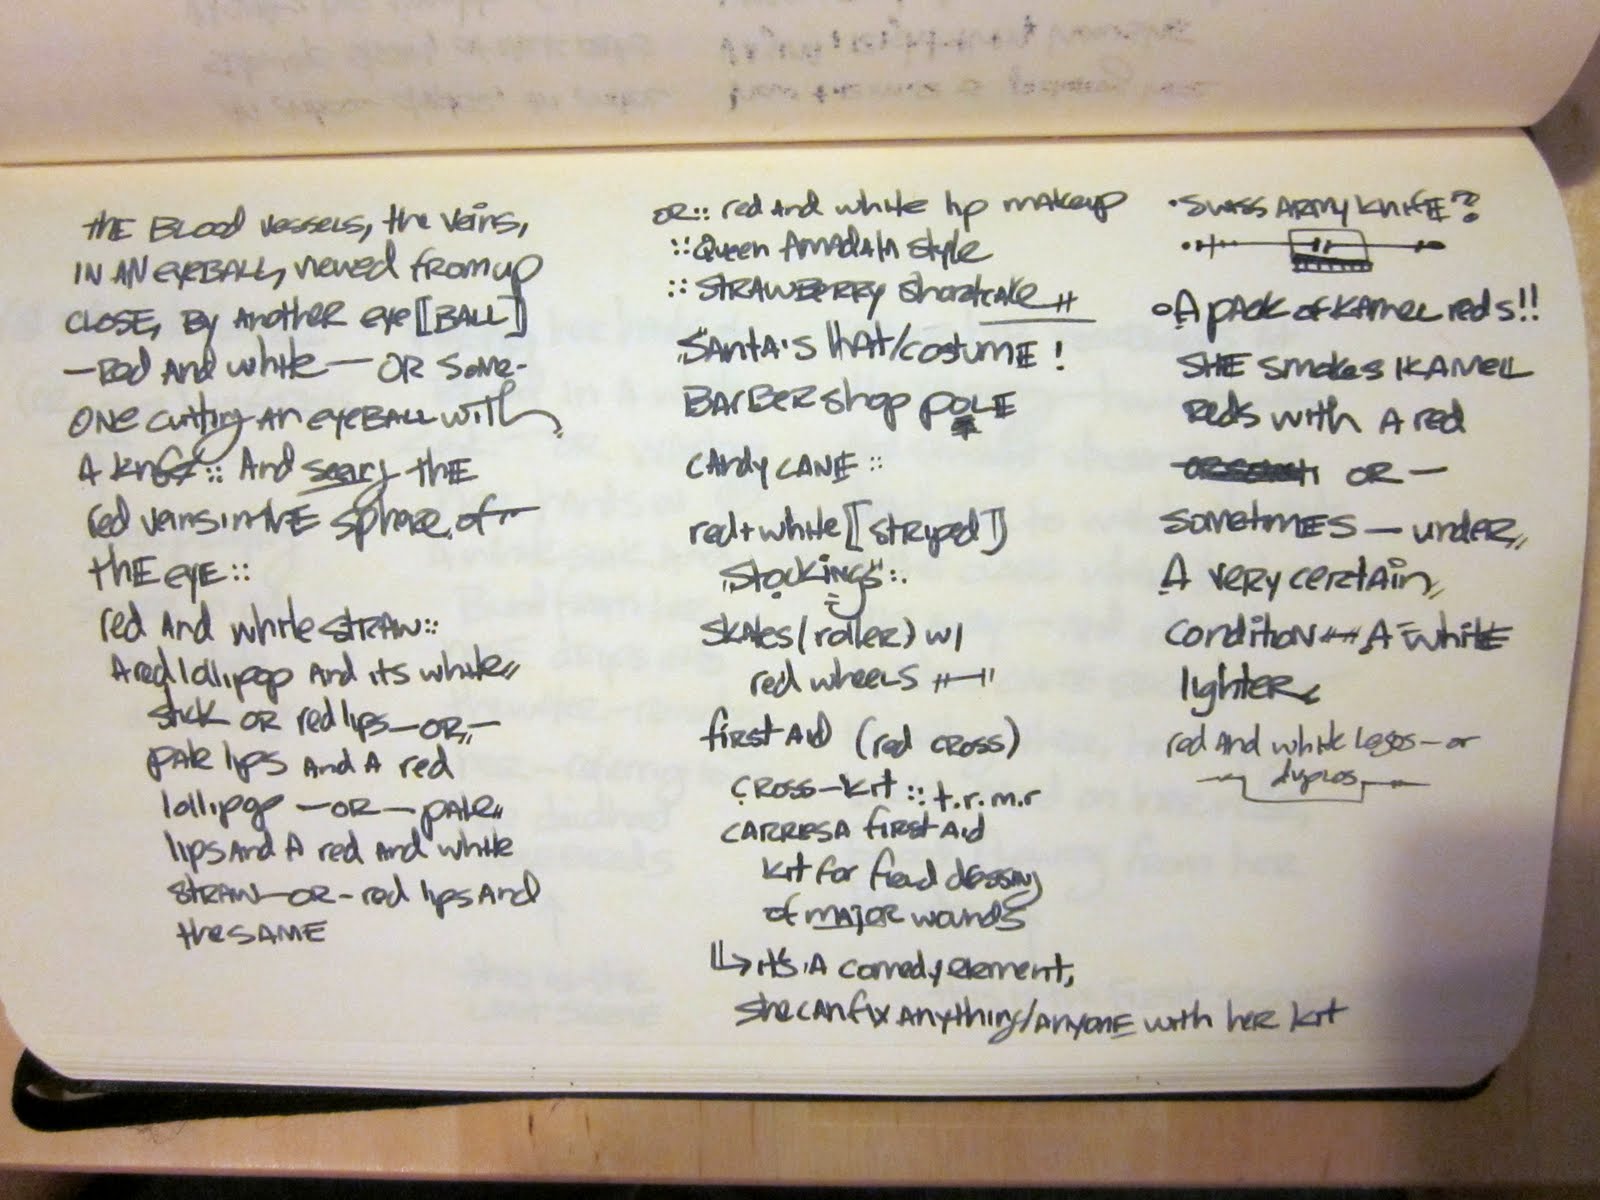 the Blood vessels, the veins,
IN AN eyeBALL, viewed from up
CLOSE, By Another eye [BALL]
— Red And white — OR Some-
ONE cutting AN eyeBALL with
A knife :: And seeing the
red veins in the sphere of —
the eye ::
red And white STRAW ::
A red lollipop And its white
stick OR red lips — OR —
pale lips And A red
lollipop — OR — pale
lips And A red And white
STRAW — OR — red lips And
the SAME
OR :: red And white lip makeup
:: Queen Amadala style
:: STRAWBERRY Shortcake
SANTA'S HAT/costume !
BARBER shop pole
CANdy CANE ::
red + white [striped]
stockings ::
skates (roller) w/
red wheels
first Aid (red cross)
CROSS-kit :: t.r.m.r
CARRIES A first Aid
kit for field dressing
of major wounds
↳ it's A comedy element,
she can fix anything/anyone with her kit
• SWISS ARMY KNIFE?
• A pack of KAMEL reds!!
SHE smokes KAMEL
Reds with A red
OR —
sometimes — under
A very certain
condition — A white
lighter
red And white Legos — or
duplos